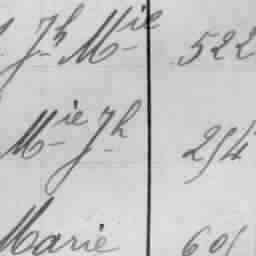 Jh Mie 522
Mie Jh 254
Marie 605